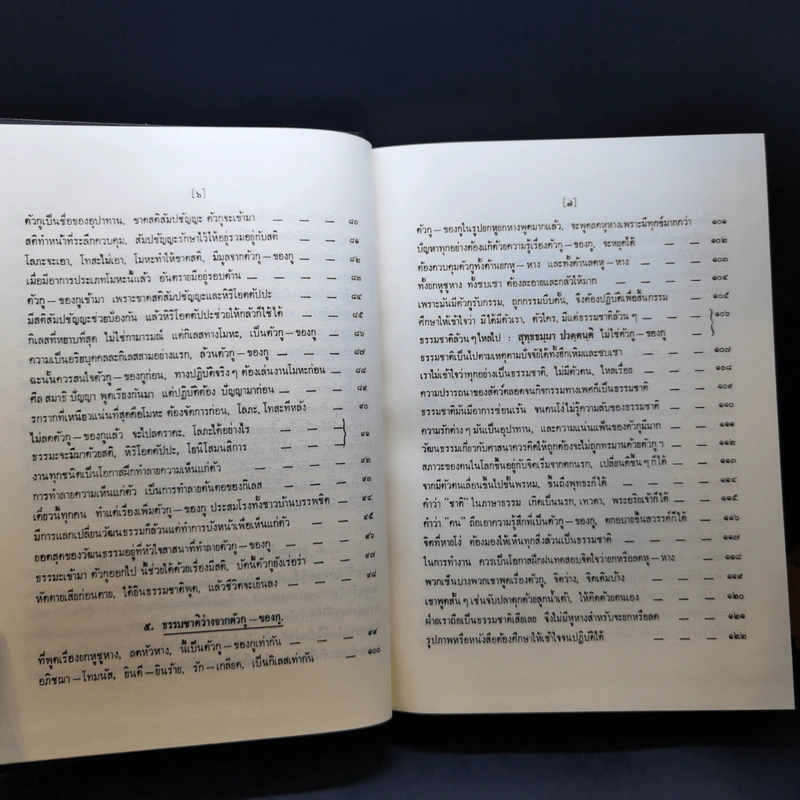 [๖]
ตัวกูเป็นชื่อของอุปาทาน, ขาดสติสัมปชัญญะ ตัวกูจะเข้ามา — — — ๘๐
สติทำหน้าที่ระลึกควบคุม, สัมปชัญญะรักษาไว้ให้อยู่รวมอยู่กับสติ — — ๘๑
โลภะจะเอา, โทสะไม่เอา, โมหะทำให้ขาดสติ, มีมูลจากตัวกู–ของกู — — ๘๒
เมื่อมีอาการประเภทโมหะนี้แล้ว อันตรายมีอยู่รอบด้าน — — — ๘๓
ตัวกู–ของกูเข้ามา เพราะขาดสติสัมปชัญญะและหิริโอตตัปปะ — — — ๘๔
มีสติสัมปชัญญะช่วยป้องกัน แล้วหิริโอตตัปปะช่วยให้กลัวก็ใช้ได้ — — ๘๕
กิเลสที่หยาบที่สุด ไม่ใช่กามารมณ์ แต่กิเลสทางโมหะ, เป็นตัวกู–ของกู — ๘๖
ความเป็นอริยบุคคลละกิเลสสามอย่างแรก, ล้วนตัวกู–ของกู — — — ๘๗
ฉะนั้นควรสนใจตัวกู–ของกูก่อน, ทางปฏิบัติจริง ๆ ต้องเล่นงานโมหะก่อน — ๘๘
ศีล สมาธิ ปัญญา พูดเรียงกันมา แต่ปฏิบัติต้อง ปัญญามาก่อน — — ๘๙
รกรากที่เหนียวแน่นที่สุดคือโมหะ ต้องจัดการก่อน, โลภะ, โทสะทีหลัง — ๙๐
ไม่ลดตัวกู–ของกูแล้ว จะไปลดราคะ, โลภะได้อย่างไร — —
ธรรมะจะมีมาด้วยสติ, หิริโอตตัปปะ, โยนิโสมนสิการ — — } ๙๑
งานทุกชนิดเป็นโอกาสฝึกทำลายความเห็นแก่ตัว — — — ๙๒
การทำลายความเห็นแก่ตัว เป็นการทำลายต้นตอของกิเลส — — — ๙๓
เดี๋ยวนี้ทุกคน ทำแต่เรื่องเพิ่มตัวกู–ของกู ประสมโรงทั้งชาวบ้านบรรพชิต — ๙๔
มีการแลกเปลี่ยนวัฒนธรรมก็ล้วนแต่ทำการบังหน้าเพื่อเห็นแก่ตัว — — ๙๕
ยอดสุดของวัฒนธรรมอยู่ที่หัวใจศาสนาที่ทำลายตัวกู–ของกู — — — ๙๖
ธรรมะเข้ามา ตัวกูออกไป นี้ช่วยได้ด้วยเรื่องมีสติ, บัดนี้ตัวกูยังเร่อร่า — ๙๗
หัดตายเสียก่อนตาย, ได้ยินธรรมชาติพูด, แล้วชีวิตจะเย็นลง — — — ๙๘
๕. ธรรมชาติว่างจากตัวกู–ของกู.
ที่พูดเรื่องยกหูชูหาง, ลดหัวหาง, นี้เป็นตัวกู–ของกูเท่ากัน — — — ๙๙
อภิชฌา–โทมนัส, ยินดี–ยินร้าย, รัก–เกลียด, เป็นกิเลสเท่ากัน — ๑๐๐
[๗]
ตัวกู–ของกูในรูปยกหูยกหางพูดมากแล้ว, จะพูดลดหูหางเพราะมีทุกข์มากกว่า ๑๐๑
ปัญหาทุกอย่างต้องแก้ด้วยความรู้เรื่องตัวกู–ของกู, จะหยุดได้ — — ๑๐๒
ต้องควบคุมตัวกูทั้งด้านยกหู–หาง และทั้งด้านลดหู–หาง — — ๑๐๓
ทั้งยกหูชูหาง ทั้งซบเซา ต้องละอายและกลัวให้มาก — — — ๑๐๔
เพราะมันมีตัวกูรับกรรม, ถูกกรรมบีบคั้น, จึงต้องปฏิบัติเพื่อสิ้นกรรม — ๑๐๕
ศึกษาให้เข้าใจว่า มิได้มีตัวเรา, ตัวใคร, มีแต่ธรรมชาติล้วน ๆ —
ธรรมชาติล้วนๆไหลไป : สุทฺธธมฺมา ปวตฺตนฺติ ไม่ใช่ตัวกู–ของกู — } ๑๐๖
ธรรมชาติเป็นไปตามเหตุตามปัจจัยได้ทั้งฮึกเหิมและซบเซา — — ๑๐๗
เราไม่เข้าใจว่าทุกอย่างเป็นธรรมชาติ, ไม่มีตัวตน, ไหลเรื่อย — — ๑๐๘
ความปรารถนาของสัตว์ตลอดจนกิจกรรมทางเพศก็เป็นธรรมชาติ — — ๑๐๙
ธรรมชาติมันมีอาการซ่อนเร้น จนคนโง่ไม่รู้ความลับของธรรมชาติ — — ๑๑๐
ความรักต่าง ๆ มันเป็นอุปาทาน, และความแน่นแฟ้นของตัวกูมีมาก — ๑๑๑
วัฒนธรรมเกี่ยวกับศาสนาควรคิดให้ถูกต้องจะไม่ถูกทรมานด้วยตัวกู ๆ — ๑๑๒
สภาวะของคนในโลกขึ้นอยู่กับจิตเริ่มจากตกนรก, เปลี่ยนดีขึ้น ๆ ก็ได้ — ๑๑๓
จากมีตัวตนเลื่อนขึ้นไปชั้นพรหม, ขึ้นถึงพุทธะก็ได้ — — — ๑๑๔
คำว่า "ชาติ" ในภาษาธรรม เกิดเป็นนรก, เทวดา, พระอริยเจ้าก็ได้ — ๑๑๕
คำว่า "คน" ถือเอาความรู้สึกที่เป็นตัวกู–ของกู, ตกอบายขึ้นสวรรค์ก็ได้ — ๑๑๖
จิตที่หายโง่ ต้องมองให้เห็นทุกสิ่งล้วนเป็นธรรมชาติ — — — ๑๑๗
ในการทำงาน ควรเป็นโอกาสฝึกฝนทดสอบจิตใจว่ายกหรือลดหู–หาง — ๑๑๘
พวกเซ็นบางพวกเขาพูดเรื่องตัวกู, จิตว่าง, จิตเดิมบ้าง — — — ๑๑๙
เขาพูดสั้น ๆ เช่นจับปลาดุกด้วยลูกน้ำเต้า, ให้คิดด้วยตนเอง — — ๑๒๐
ฝ่ายเราถือเป็นธรรมชาติเสียเลย จึงไม่มีหูหางสำหรับจะยกหรือลด — — ๑๒๑
รูปภาพหรือหนังสือต้องศึกษาให้เข้าใจจนปฏิบัติได้ — — — ๑๒๒